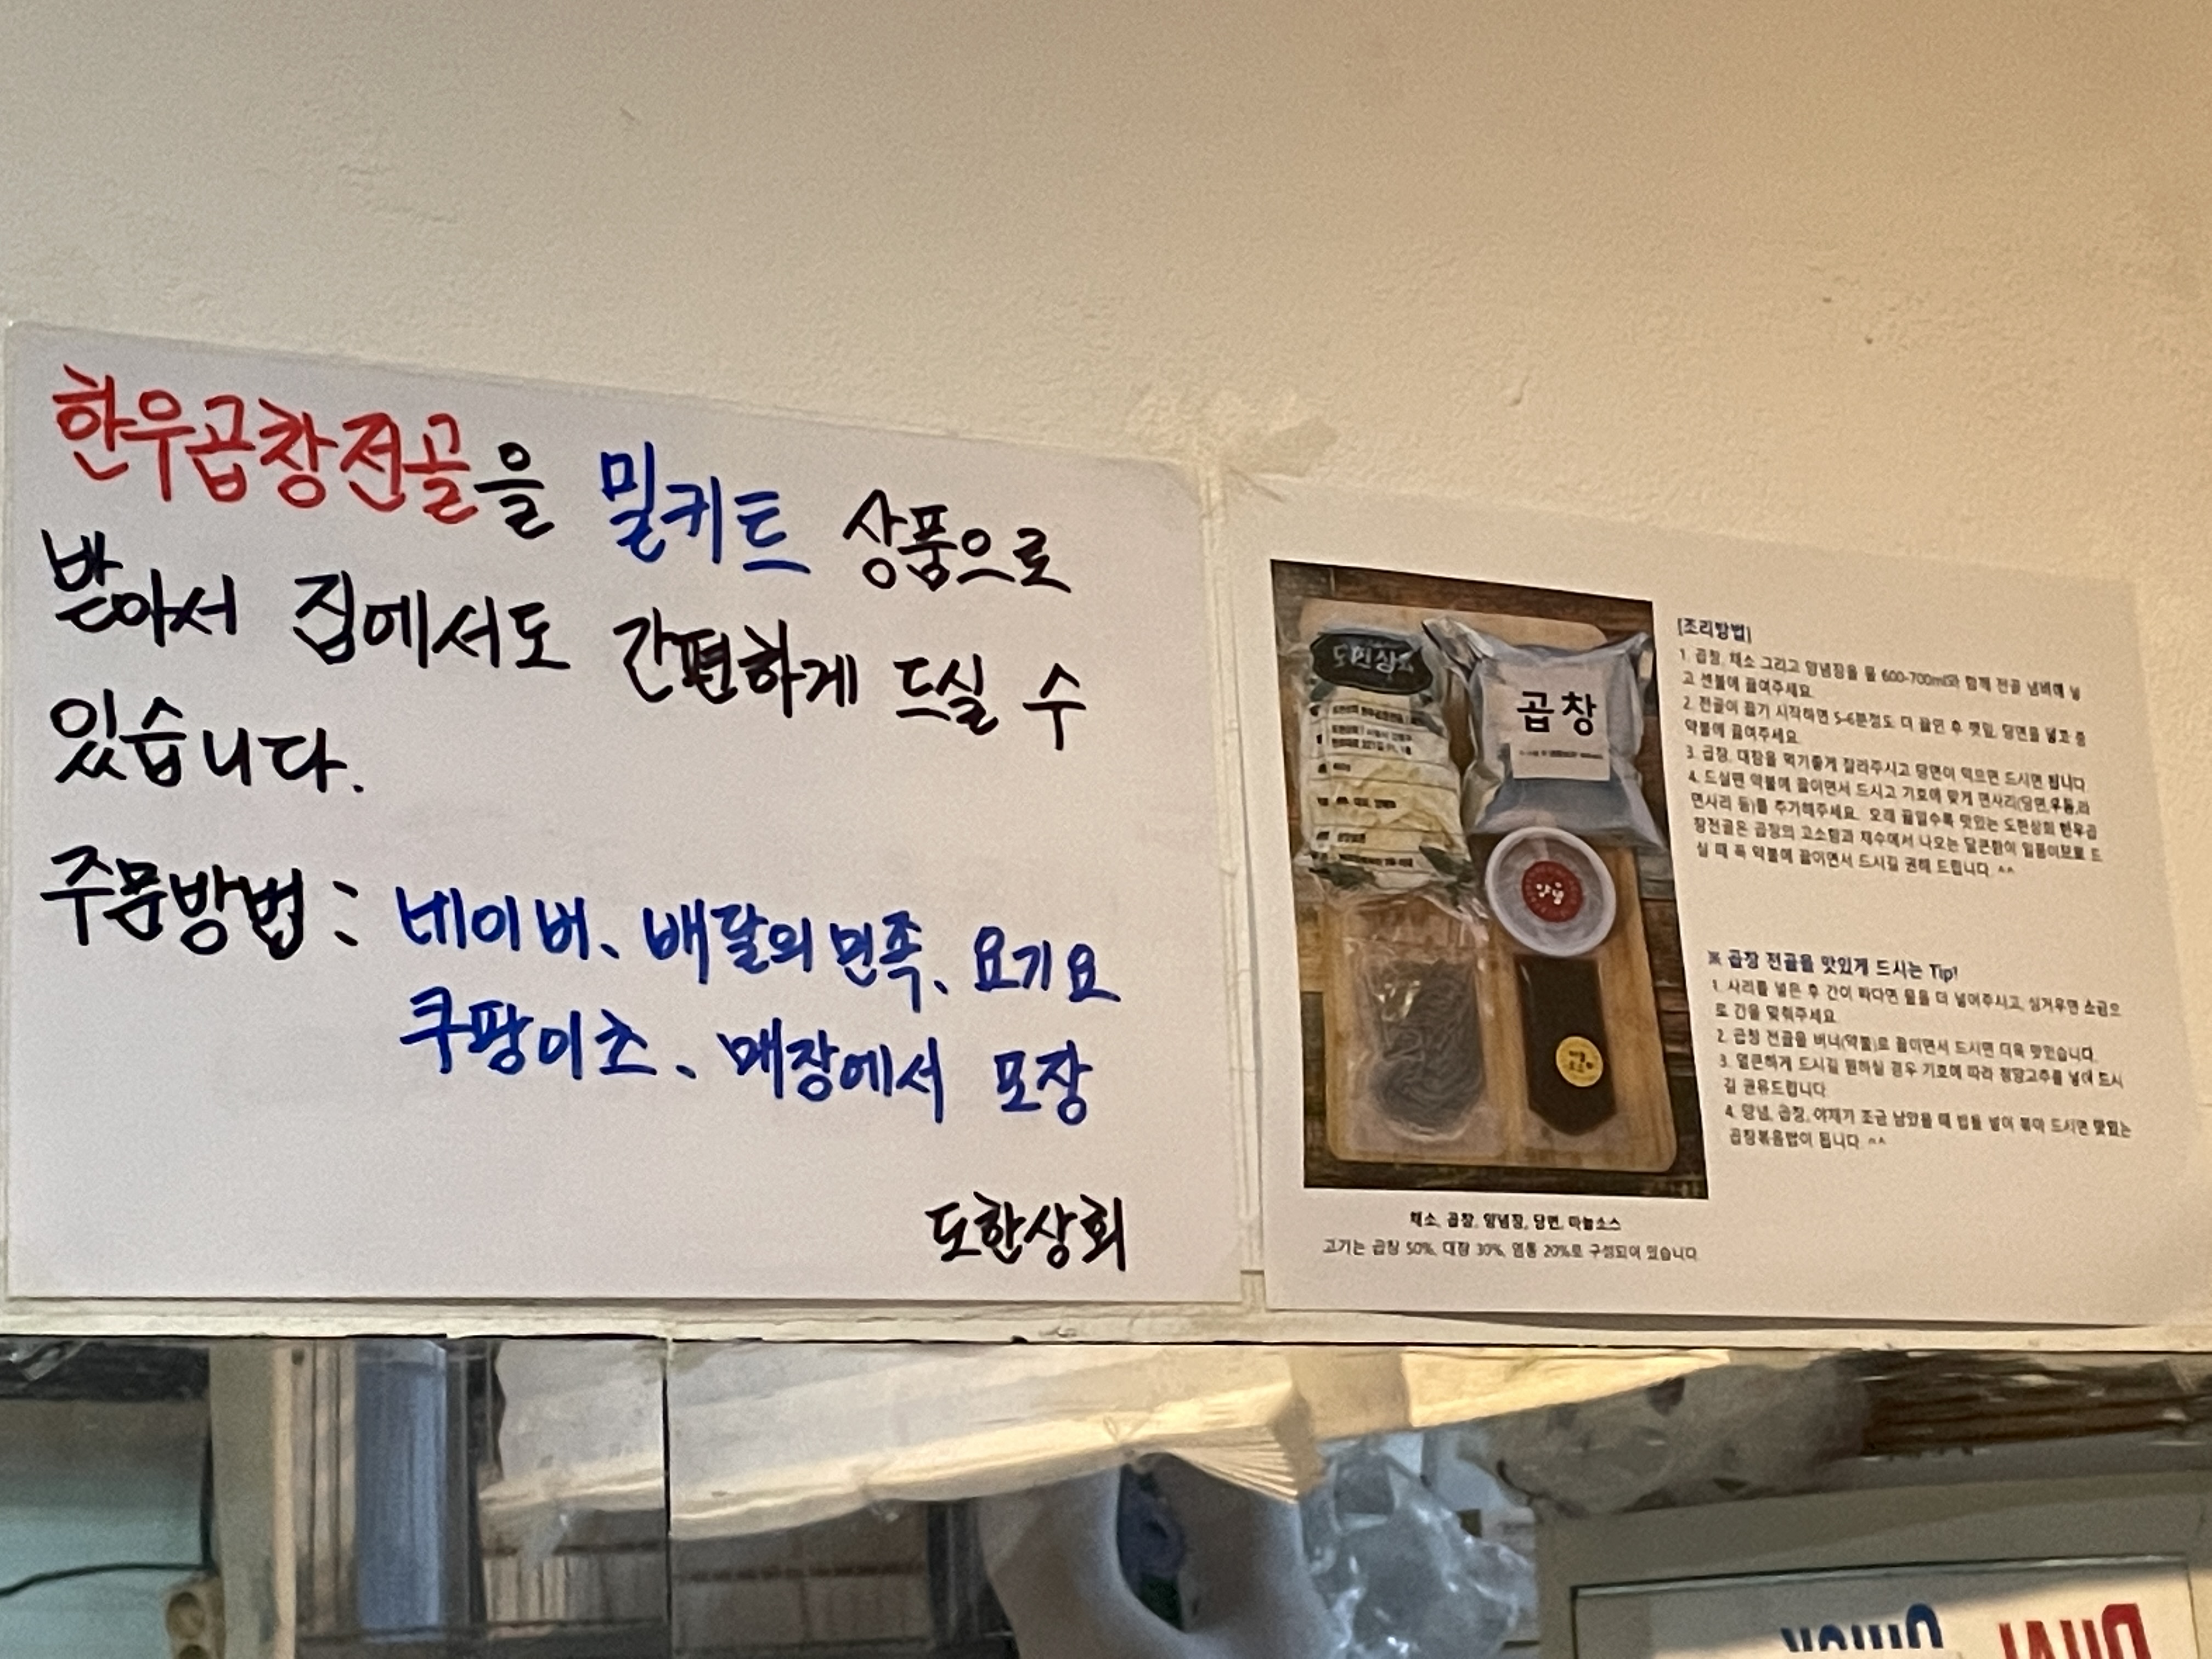 한우곱창전골을 밀키트 상품으로
받아서 집에서도 간편하게 드실 수
있습니다.
주문방법: 네이버、배달의민족、요기요
쿠팡이츠、매장에서 포장
도한상회
도한상회
곱창
[조리방법]
1. 곱창, 채소 그리고 양념장을 물 600-700ml와 함께 전골 냄비에 넣
고 센불에 끓여주세요.
2. 전골이 끓기 시작하면 5-6분정도 더 끓인 후 깻잎, 당면을 넣고 중
약불에 끓여주세요.
3. 곱창, 대창을 먹기좋게 잘라주시고 당면이 익으면 드시면 됩니다.
4. 드실땐 약불에 끓이면서 드시고 기호에 맞게 면사리(당면,우동,라
면사리 등)를 추가해주세요. 오래 끓일수록 맛있는 도한상회 한우곱
창전골은 곱창의 고소함과 채수에서 나오는 달큰함이 일품이므로 드
실 때 꼭 약불에 끓이면서 드시길 권해 드립니다. ^^
※ 곱창 전골을 맛있게 드시는 Tip!
1. 사리를 넣은 후 간이 짜다면 물을 더 넣어주시고, 싱거우면 소금으
로 간을 맞춰주세요.
2. 곱창 전골을 버너(약불)로 끓이면서 드시면 더욱 맛있습니다.
3. 얼큰하게 드시길 원하실 경우 기호에 따라 청양고추를 넣어 드시
길 권유드립니다.
4. 양념, 곱창, 야채가 조금 남았을 때 밥을 넣어 볶아 드시면 맛있는
곱창볶음밥이 됩니다. ^^
채소, 곱창, 양념장, 당면, 마늘소스
고기는 곱창 50%, 대창 30%, 염통 20%로 구성되어 있습니다.